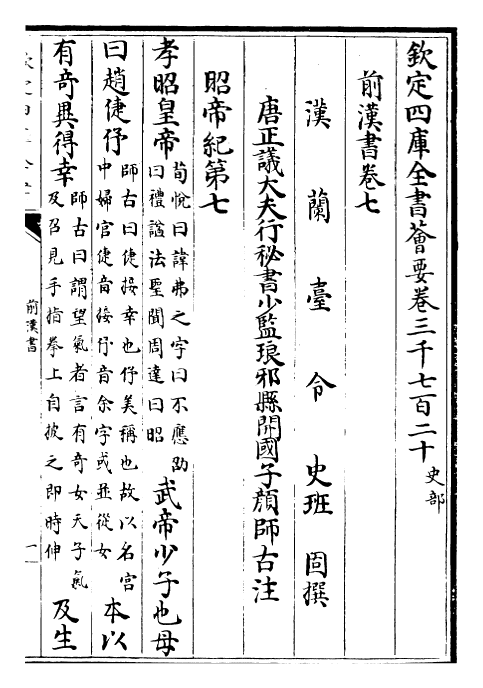 欽定四庫全書薈要卷三千七百二十 史部
前漢書卷七
漢蘭臺令史班固撰
唐正議大夫行秘書少監琅邪縣開國子顏師古注
昭帝紀第七
孝昭皇帝 荀悅曰諱弗之字曰不應劭曰禮諡法聖聞周達曰昭 武帝少子也母
曰趙倢伃 師古曰倢接幸也伃美稱也故以名宮中婦官倢音接伃音余字或並從女 本以
有奇異得幸 師古曰謂望氣者言有奇女天子氣及召見手指拳上自披之即時伸 及生
前漢書
一